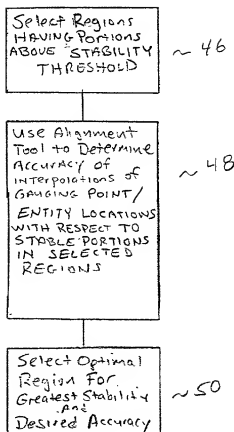 Select Regions
HAVING PORTIONS
ABOVE STABILITY
THRESHOLD
~ 46
Use Alignment
Tool to Determine
Accuracy of
INTERPOLATIONS of
GAUGING POINT/
ENTITY LOCATIONS
WITH RESPECT TO
STABLE PORTIONS
IN SELECTED
REGIONS
~ 48
Select Optimal
Region For
Greatest Stability
And
Desired Accuracy
~ 50